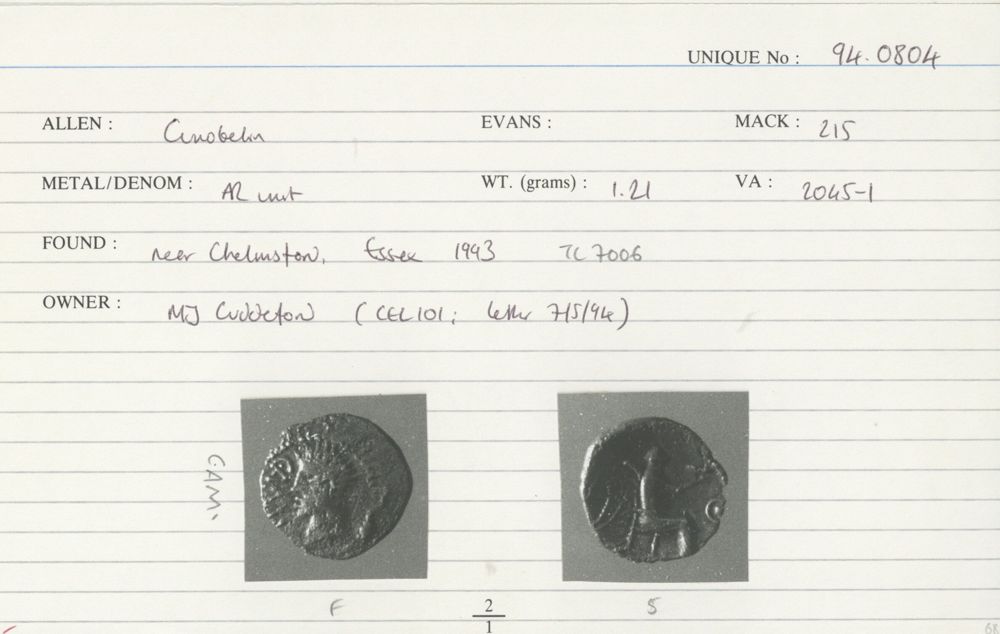 UNIQUE No : 94.0804
ALLEN : Cunobelin EVANS : MACK : 215
METAL/DENOM : AR unit WT. (grams) : 1.21 VA : 2045-1
FOUND : near Chelmsford, Essex 1993 TL 7006
OWNER : MJ Cuddeford (CEL101; letter 7/5/94)
CAM.
F 2/1 S
68